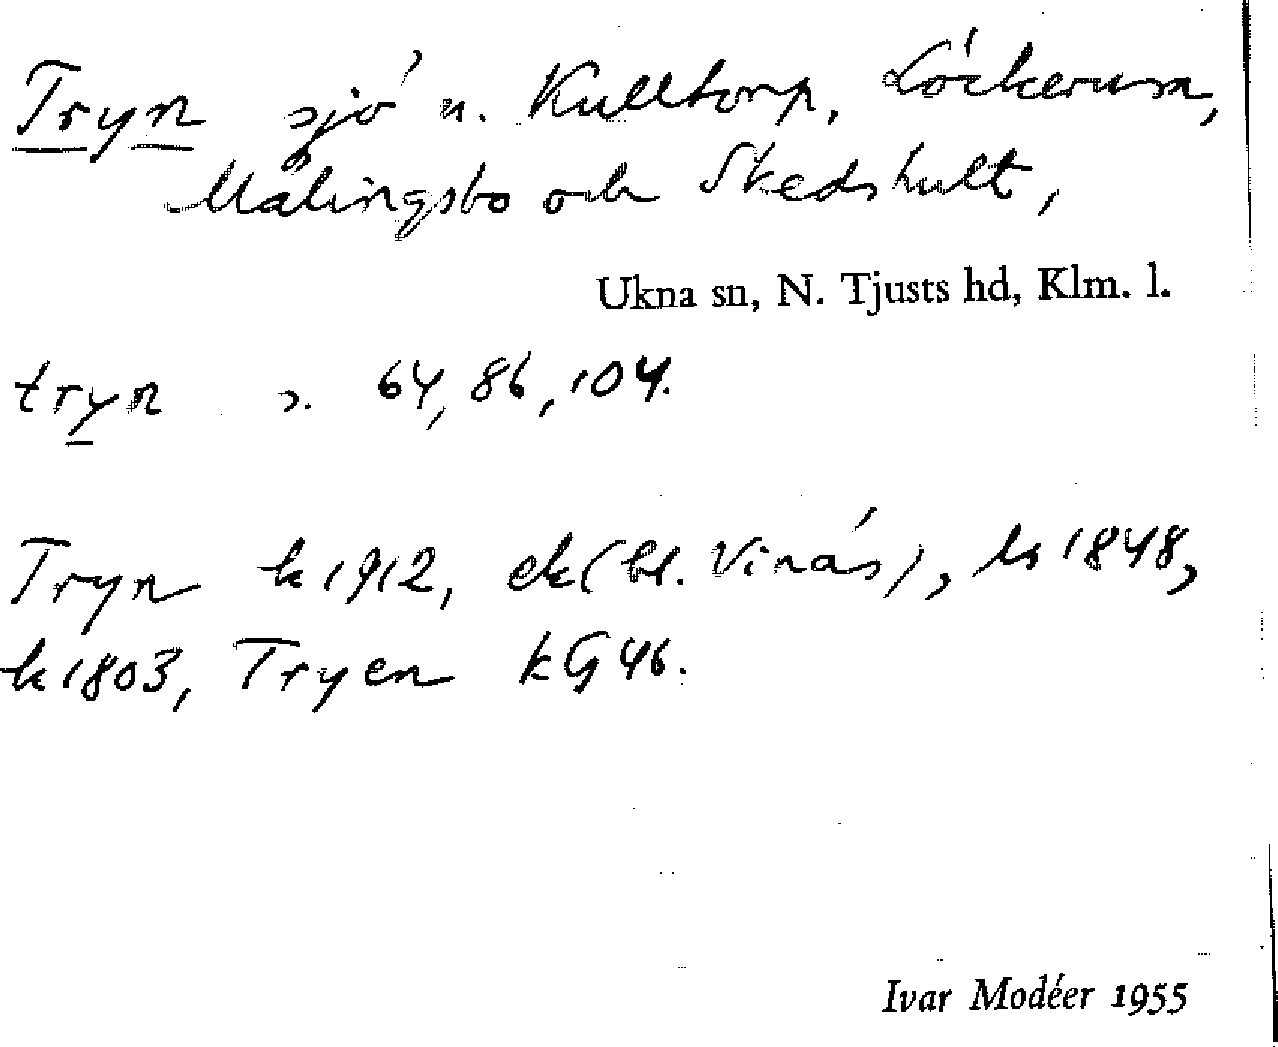 Tryn sjö n. Kulltorp, Löckerum,
Målingsbo och Skedshult,
Ukna sn, N. Tjusts hd, Klm. l.
tryn s. 64, 86, 104.
Tryn k 1912, ek (bl. Vinäs), ls 1848,
k 1803, Tryen kG 46.
Ivar Modéer 1955